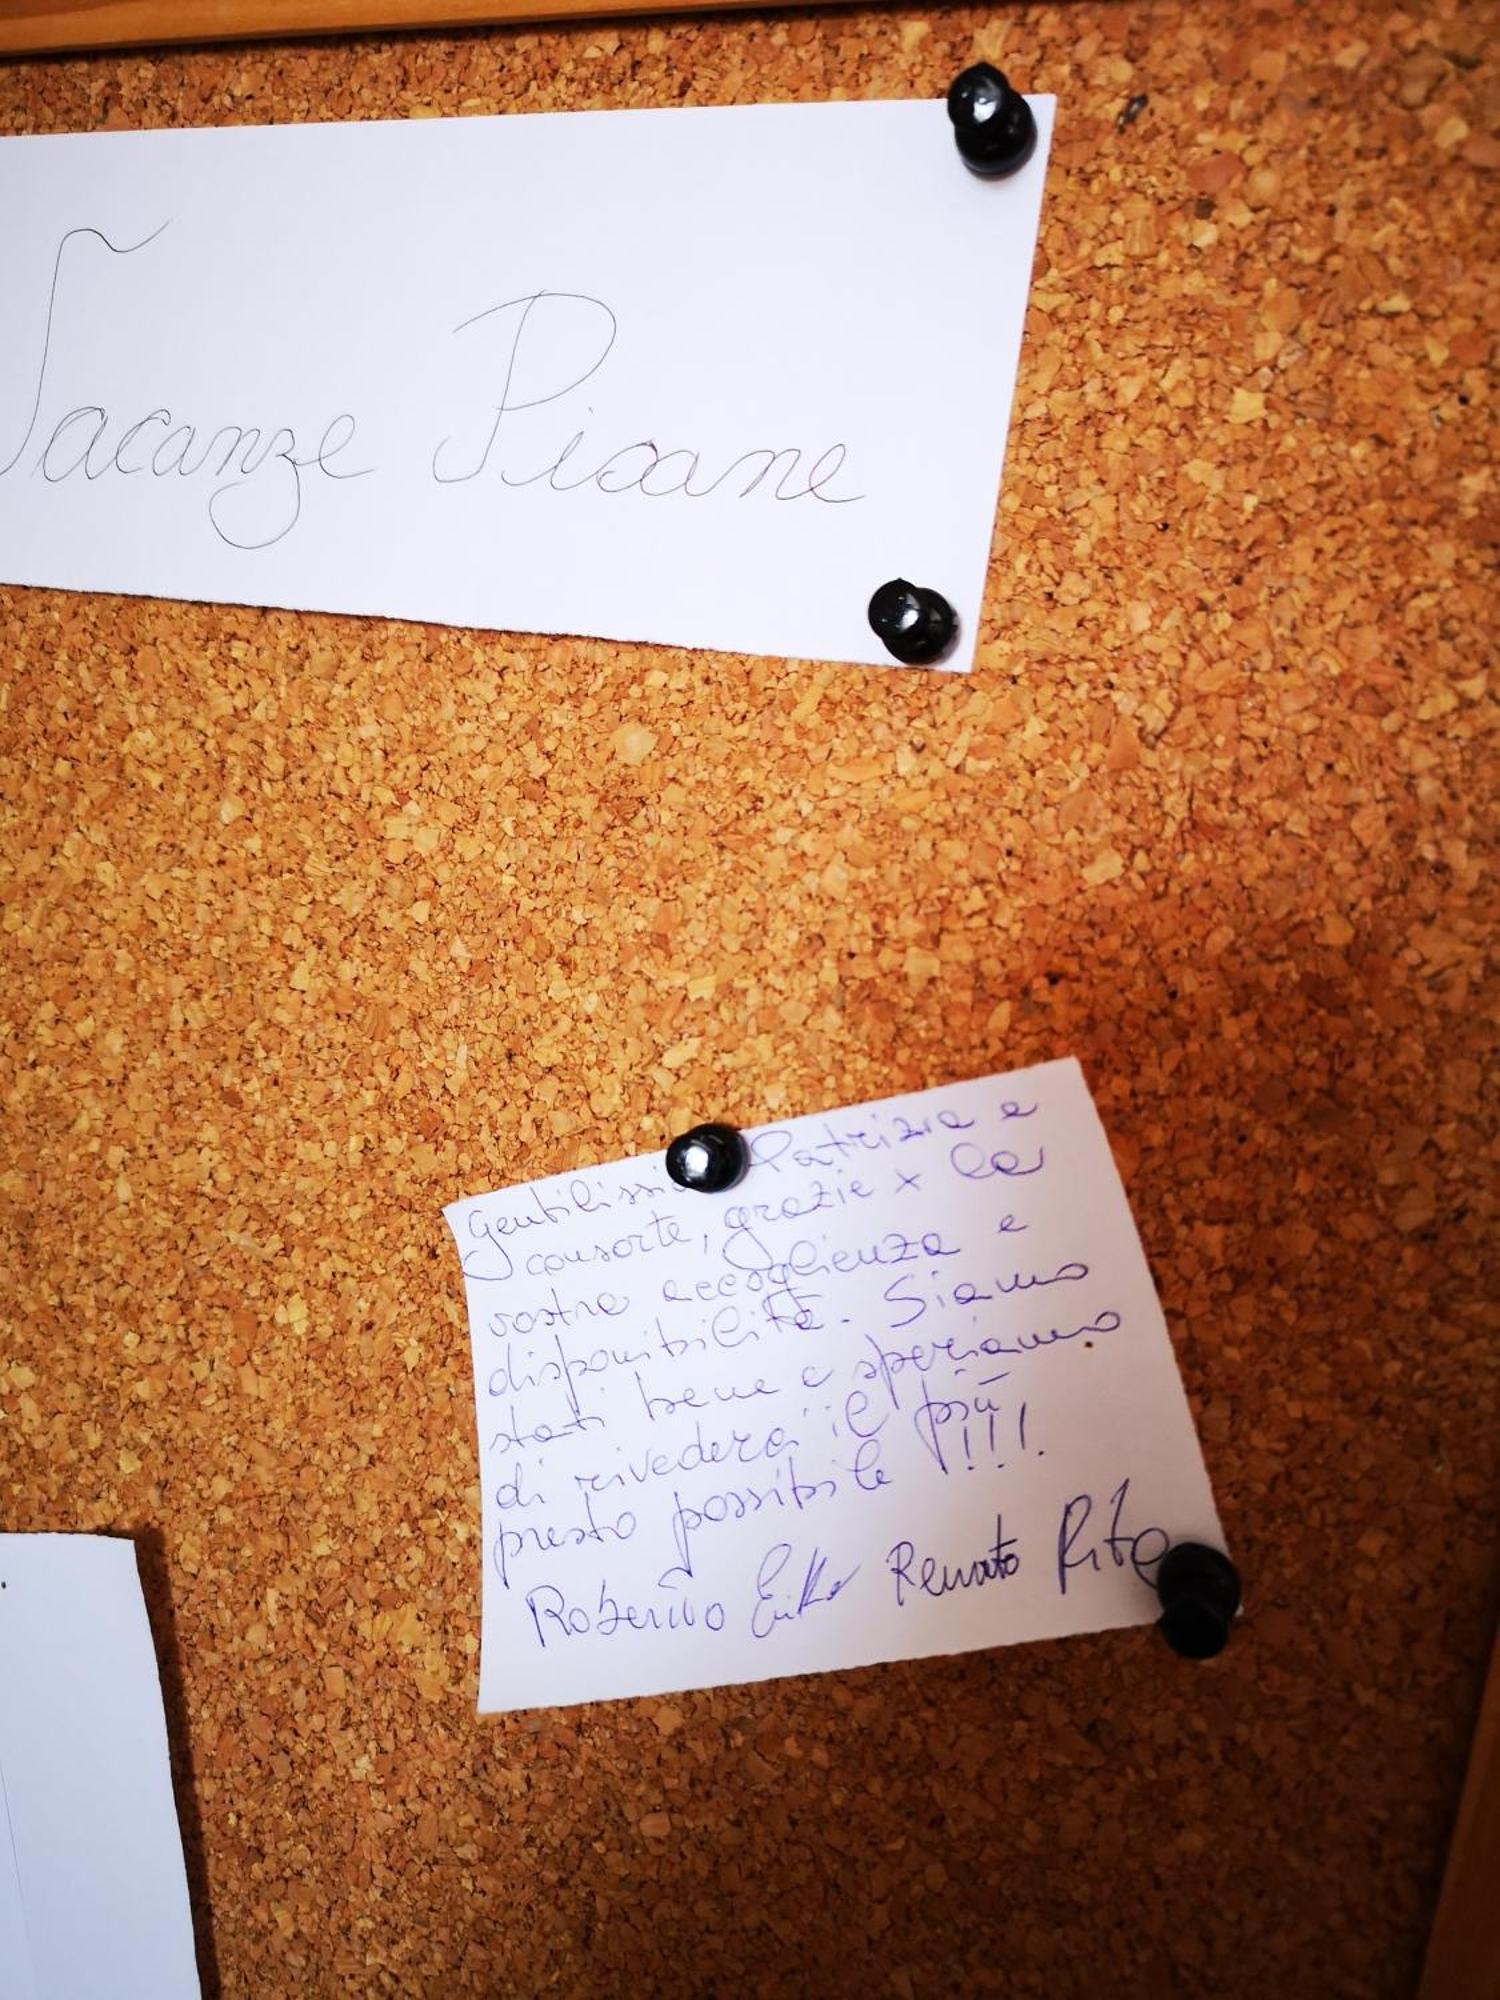 Vacanze Pisane
Gentilissi Patrizia e
consorte, grazie x la
vostra accoglienza e
disponibilità. Siamo
stati bene e speriamo
di rivederci il più
presto possibile !!!.
Roberto Erika Renato Rita